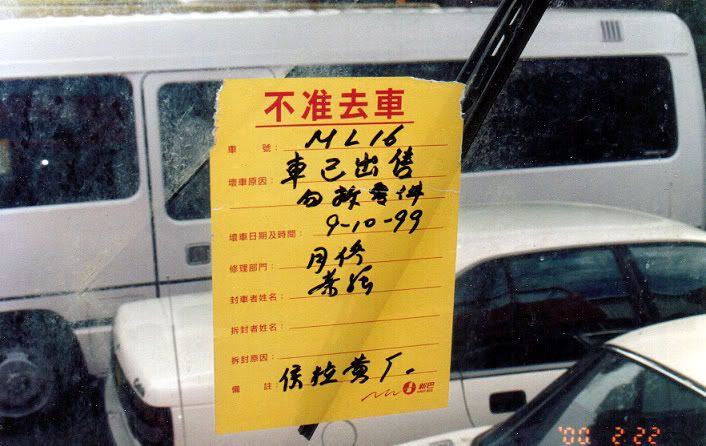 不准去車
車 號： ML16
壞車原因： 車已出售
勿拆零件
壞車日期及時間： 9-10-99
修理部門： 月修
封車者姓名：
拆封者姓名：
拆封原因：
備 註： 侯拉黃厂.
新巴
'00 2 22